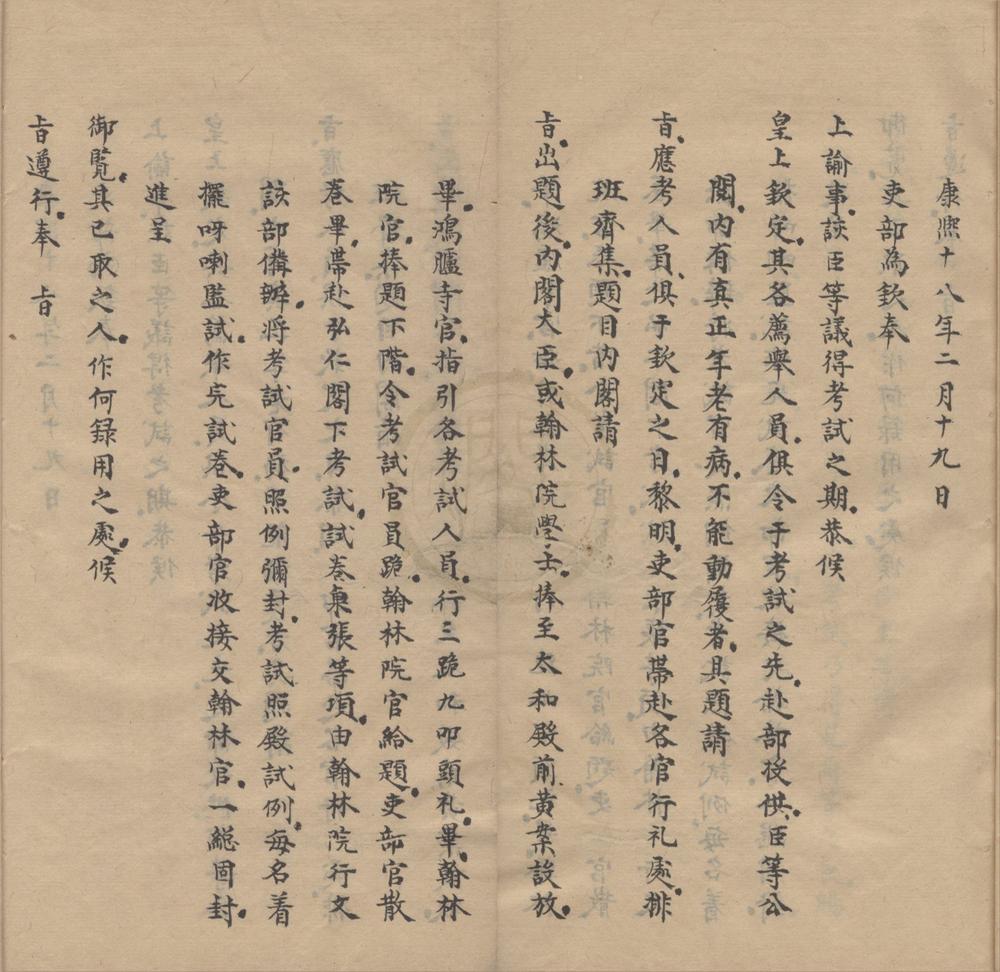 康熈十八年二月十九日
吏部為欽奉
上諭事該臣等議得考試之期恭候
皇上欽定其各薦舉人員俱令于考試之先赴部投供臣等公
閱内有真正年老有病不能動履者具題請
旨應考人員俱于欽定之日黎明吏部官帶赴各官行礼處排
班齊集題目内閣請
旨出題後内閣大臣或翰林院學士捧至太和殿前黄案設放
畢鴻臚寺官指引各考試人員行三跪九叩頭礼畢翰林
院官捧題下階令考試官員跪翰林院官給題吏部官散
卷畢帶赴弘仁閣下考試試卷棗張等項由翰林院行文
該部備辦将考試官員照例彌封考試照殿試例每名着
擺呀喇監試作完試卷吏部官收接交翰林官一總固封
進呈
御覧其已取之人作何録用之處候
旨遵行奉 旨